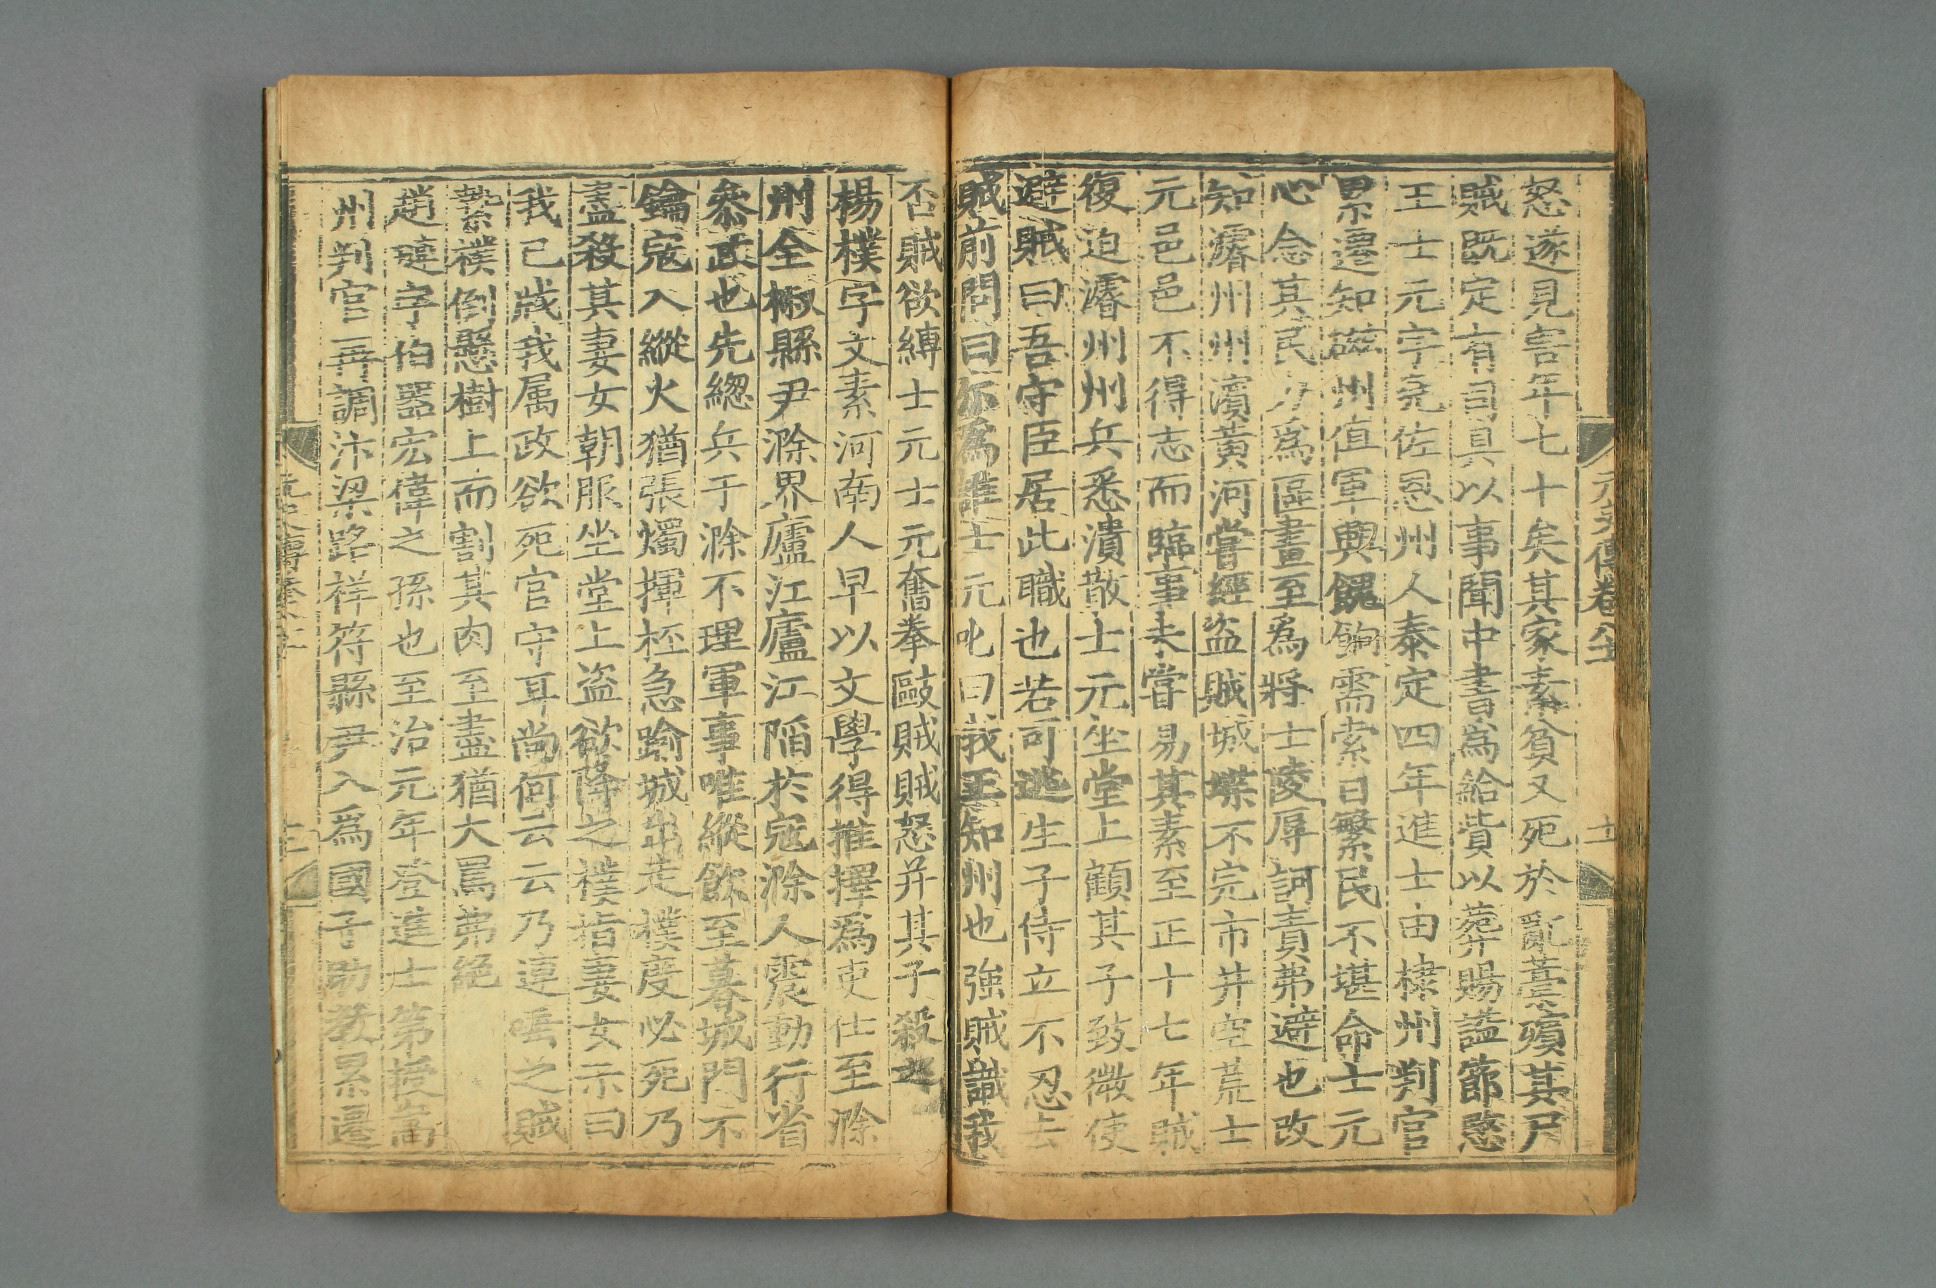 怒遂見害年七十矣其家素貧又死於亂藁殯其尸
賊既定有司具以事聞中書爲給貲以葬賜諡節愍
王士元字堯佐恩州人泰定四年進士由棣州判官
累遷知磁州值軍興餽餉需索日繁民不堪命士元
心念其民力爲區畫至爲將士陵辱訶責弗避也改
知濬州州濱黃河嘗經盜賊城堞不完市井空荒士
元邑邑不得志而臨事未嘗易其素至正十七年賊
復迫濬州州兵悉潰散士元坐堂上顧其子致微使
避賊曰吾守臣居此職也若可逃生子侍立不忍去
賊前問曰尔爲誰士元叱曰我王知州也強賊識我
否賊欲縛士元士元奮拳毆賊賊怒并其子殺之
楊樸字文素河南人早以文學得推擇爲吏仕至滁
州全椒縣尹滁界廬江廬江陷於寇滁人震動行省
參政也先總兵于滁不理軍事唯縱飲至暮城門不
鑰寇入縱火猶張燭揮杯急踰城出走樸度必死乃
盡殺其妻女朝服坐堂上盜欲降之樸指妻女示曰
我已戕我属政欲死官守耳尚何云云乃連唾之賊
縶樸倒懸樹上而割其肉至盡猶大罵弗絕
趙璉字伯器宏偉之孫也至治元年登進士第授嵩
州判官再調汴梁路祥符縣尹入爲國子助教累遷